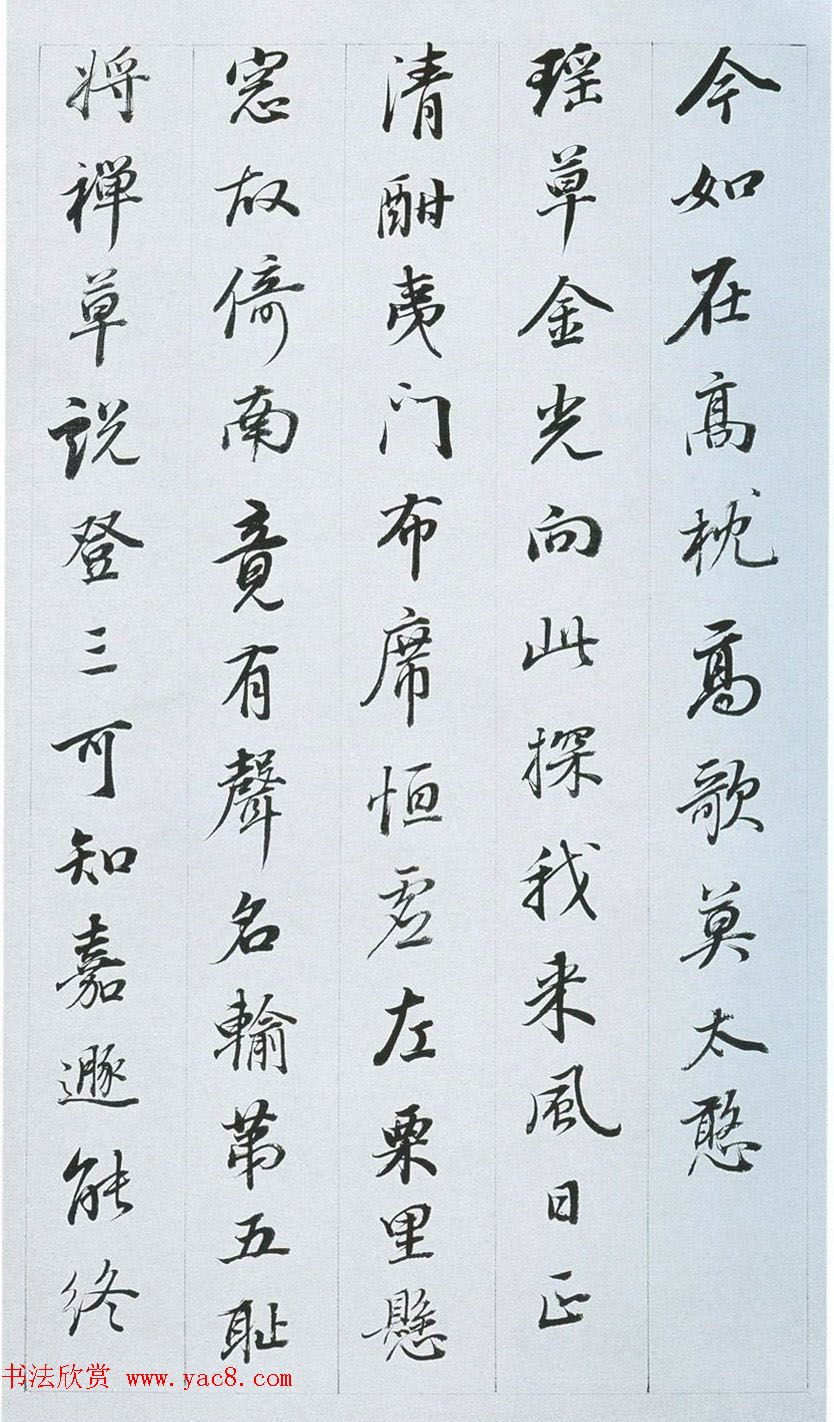 今如在高枕高歌莫太憨
瑶草金光向此探我来風日正
清酣夷门布席恒虚左栗里懸
窓故倚南竟有聲名輸第五耻
将禅草説登三可知嘉遯能终
书法欣赏 www.yac8.com